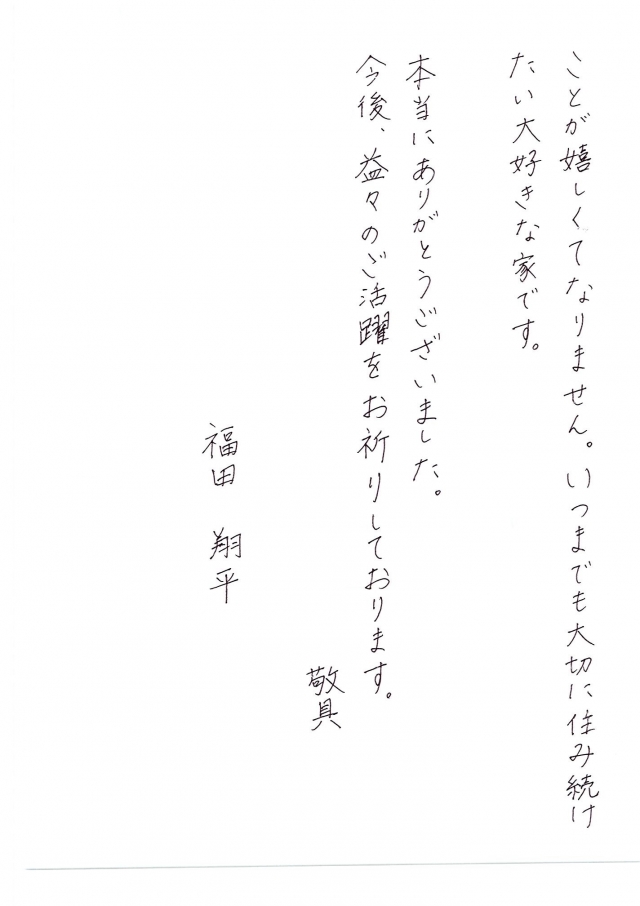 ことが嬉しくてなりません。いつまでも大切に住み続け
たい大好きな家です。
本当にありがとうございました。
今後、益々のご活躍をお祈りしております。
敬具
福田 翔平